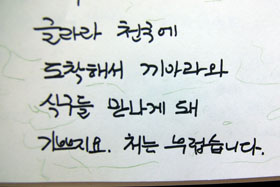 글라라 천국에
도착해서 끼아라와
식구들 만나게 돼
기쁘지요. 저는 부럽습니다.